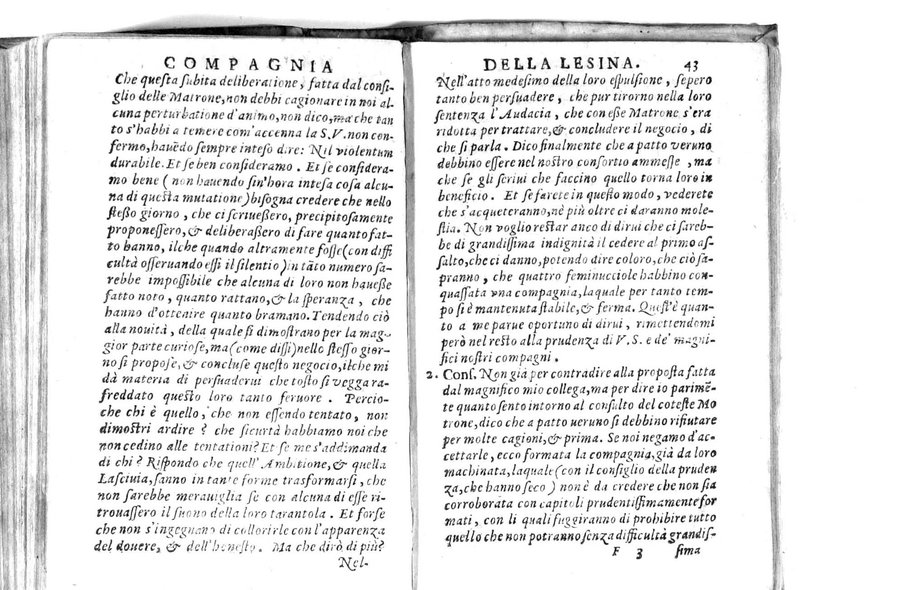 COMPAGNIA
Che questa subita deliberatione, fatta dal consi-
glio delle Matrone, non debbi cagionare in noi al-
cuna perturbatione d'animo, non dico, ma che tan
to s'habbi a temere com'accenna la S.V. non con-
fermo, hauẽdo sempre inteso dire: Nil violentum
durabile. Et se ben consideramo. Et se considera-
mo bene (non hauendo sin'hora intesa cosa alcu-
na di questa mutatione) bisogna credere che nello
stesso giorno, che ci scriueßero, precipitosamente
proponessero, & deliberaßero di fare quanto fat-
to hanno, ilche quando altramente fosse (con diffi
cultà osseruando essi il silentio) in tãto numero sa-
rebbe impossibile che alcuna di loro non haueße
fatto noto, quanto rattano, & la speranza, che
hanno d'ottenire quanto bramano. Tendendo ciò
alla nouità, della quale si dimostrano per la mag-
gior parte curiose, ma (come dissi) nello stesso gior-
no si propose, & concluse questo negocio, ilche mi
dà materia di persuaderui che tosto si vegga ra-
freddato questo loro tanto feruore. Percio-
che chi è quello, che non essendo tentato, non
dimostri ardire? che sicurtà habbiamo noi che
non cedino alle tentationi? Et se me s'addimanda
di chi? Rispondo che quell'Ambitione, & quella
Lasciuia, sanno in tante forme trasformarsi, che
non sarebbe merauiglia se con alcuna di esse ri-
trouassero il suono della loro tarantola. Et forse
che non s'ingegnano di collorirle con l'apparenza
del douere, & dell'honesto. Ma che dirò di più?
Nel-
DELLA LESINA. 43
Nell'atto medesimo della loro espulsione, sepero
tanto ben persuadere, che pur tirorno nella loro
sentenza l'Audacia, che con eße Matrone s'era
ridotta per trattare, & concludere il negocio, di
che si parla. Dico finalmente che a patto veruno
debbino essere nel nostro consortio ammesse, ma
che se gli scriui che faccino quello torna loro in
beneficio. Et se farete in questo modo, vederete
che s'acqueteranno, nè più oltre ci daranno mole-
stia. Non voglio restar anco di dirui che ci sareb-
be di grandissima indignità il cedere al primo as-
salto, che ci danno, potendo dire coloro, che ciò sa-
pranno, che quattro feminucciole habbino con-
quassata vna compagnia, laquale per tanto tem-
po si è mantenuta stabile, & ferma. Quest'è quan-
to a me parue oportuno di dirui, rimettendomi
però nel resto alla prudenza di V. S. e de' magni-
fici nostri compagni.
2. Cons. Non già per contradire alla proposta fatta
dal magnifico mio collega, ma per dire io parimẽ-
te quanto sento intorno al consulto del coteste Ma
trone, dico che a patto ueruno si debbino rifiutare
per molte cagioni, & prima. Se noi negamo d'ac-
cettarle, ecco formata la compagnia, già da loro
machinata, laquale (con il consiglio della pruden
za, che hanno seco) non è da credere che non sia
corroborata con capitoli prudentissimamente for
mati, con li quali fuggiranno di prohibire tutto
quello che non potranno senza difficultà grandis-
F 3 sima